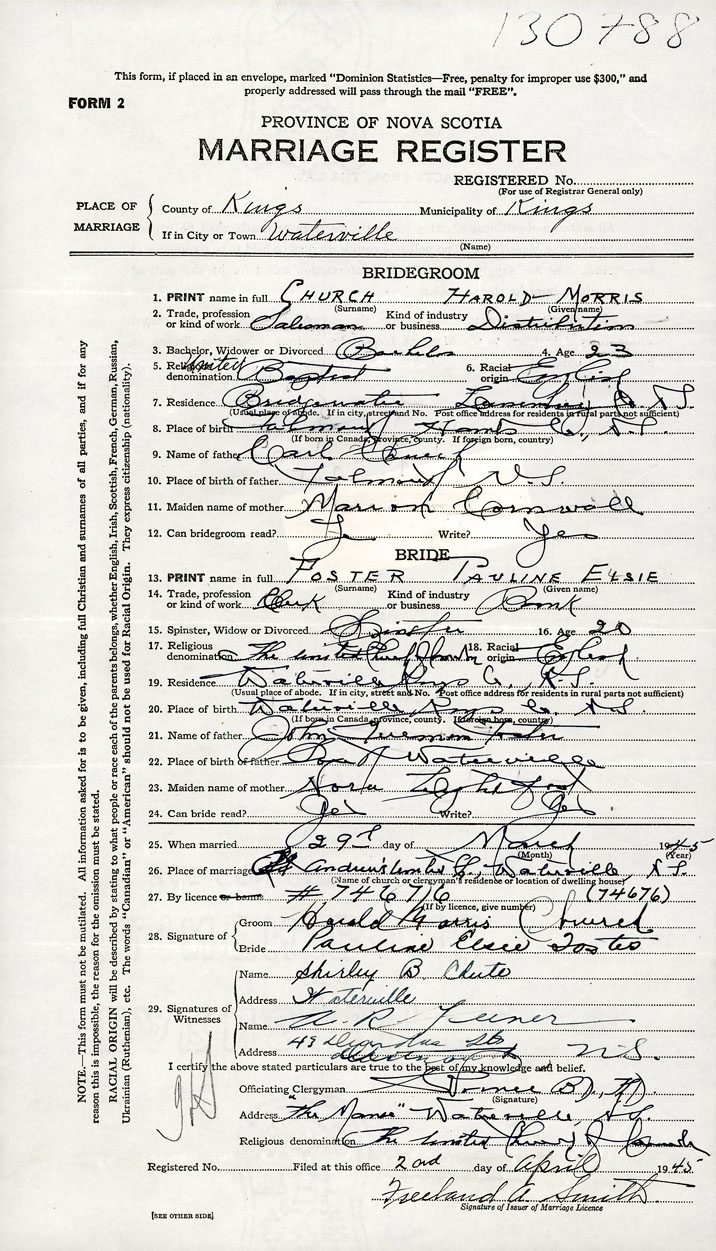 130788
This form, if placed in an envelope, marked "Dominion Statistics—Free, penalty for improper use $300," and
properly addressed will pass through the mail "FREE".
FORM 2
PROVINCE OF NOVA SCOTIA
MARRIAGE REGISTER
REGISTERED No.
(For use of Registrar General only)
PLACE OF MARRIAGE
County of Kings Municipality of Kings
If in City or Town Waterville
(Name)
BRIDEGROOM
1. PRINT name in full CHURCH HAROLD MORRIS
(Surname) (Given name)
2. Trade, profession or kind of work Salesman Kind of industry or business Distribution
3. Bachelor, Widower or Divorced Bachelor 4. Age 23
5. Religious denomination United Baptist 6. Racial origin English
7. Residence Bridgewater Lunenburg Co. N.S.
(Usual place of abode. If in city, street and No. Post office address for residents in rural parts not sufficient)
8. Place of birth Falmouth Hants Co., N.S.
(If born in Canada, province, county. If foreign born, country)
9. Name of father Carl Church
10. Place of birth of father Falmouth N.S.
11. Maiden name of mother Marion Cornwall
12. Can bridegroom read? Yes Write? Yes
BRIDE
13. PRINT name in full FOSTER PAULINE ELSIE
(Surname) (Given name)
14. Trade, profession or kind of work Clerk Kind of industry or business Bank
15. Spinster, Widow or Divorced Spinster 16. Age 20
17. Religious denomination The United Church 18. Racial origin English
19. Residence Waterville Kings Co., N.S.
(Usual place of abode. If in city, street and No. Post office address for residents in rural parts not sufficient)
20. Place of birth Waterville Kings Co. N.S.
(If born in Canada, province, county. If foreign born, country)
21. Name of father John Foster
22. Place of birth of father Waterville
23. Maiden name of mother Nora Lightfoot
24. Can bride read? Yes Write? Yes
25. When married 29th day of March 1945
(Month) (Year)
26. Place of marriage St. Andrew's United Ch., Waterville, N.S.
(Name of church or clergyman's residence or location of dwelling house)
27. By licence or banns # 74676 (74676)
(If by licence, give number)
28. Signature of
Groom Harold Morris Church
Bride Pauline Elsie Foster
29. Signatures of Witnesses
Name Shirley B. Chute
Address Waterville
Name A. R.
Address 49 St. N.S.
I certify the above stated particulars are true to the best of my knowledge and belief.
Officiating Clergyman
(Signature)
Address "The Manse" Waterville, N.S.
Religious denomination The United Church of Canada
Registered No. Filed at this office 2nd day of April 1945
Freeland A. Smith
Signature of Issuer of Marriage Licence
[SEE OTHER SIDE]
NOTE.—This form must not be mutilated. All information asked for is to be given, including full Christian and surnames of all parties, and if for any
reason this is impossible, the reason for the omission must be stated.
RACIAL ORIGIN will be described by stating to what people or race each of the parents belongs, whether English, Irish, Scottish, French, German, Russian,
Ukrainian (Ruthenian), etc. The words "Canadian" or "American" should not be used for Racial Origin. They express citizenship (nationality).